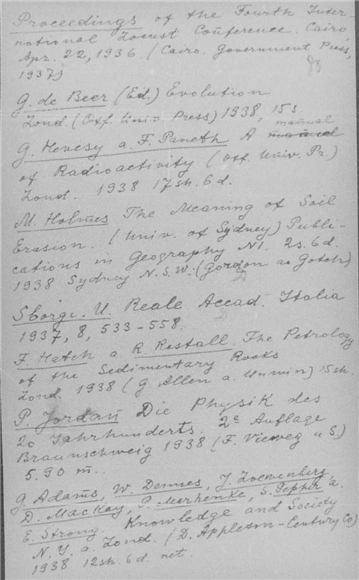 Proceedings of the Fourth Inter
national Locust Conference. Cairo
Apr. 22, 1936. (Cairo. Government Press,
1937)
G. de Beer (Ed.) Evolution
Lond (Oxf. Univ. Press) 1938, 15s.
manual
G. Hevesy a. F. Paneth A manual
of Radioactivity (Oxf. Univ. Pr.)
Lond. 1938 17sh. 6d.
M. Holmes The Meaning of Soil
Erosion. (Univ. of Sydney) Publi-
cations in Geography N1. 2s. 6d.
1938 Sydney N.S.W. (Gordon a. Gotch)
Sborgi. U. Reale Accad. Italia
1937, 8, 533-558.
F. Hatch a. R. Rastall. The Petrology
of the Sedimentary Rocks
Lond. 1938 (G. Allen a. Unwin) 15sh.
P. Jordan Die Physik des
20 Jahrhunderts. 2e Auflage
Braunschweig 1938 (F. Vieweg u S)
5.90 m.
G. Adams, W. Dennes, J. Loewenberg,
D. Mackay, P. Marhenke, S. Pepper a.
E. Strong. Knowledge and Society
N. Y. a. Lond. (D. Appleton-Century Co)
1938 12sh. 6d. net.